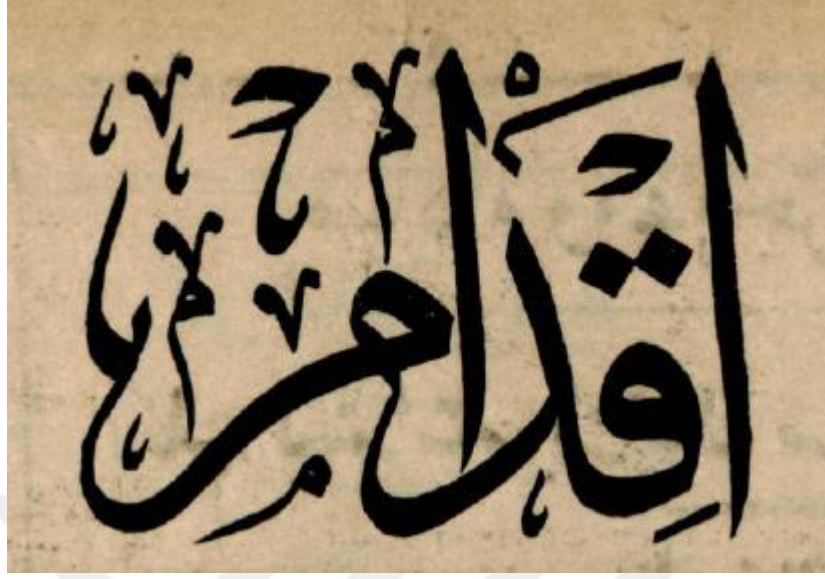 اِقْدَام